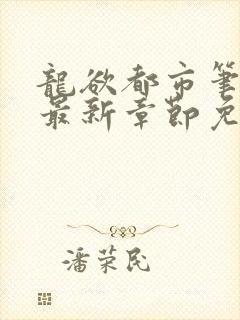 龍欲都市筆
最新章節免
潘荣民